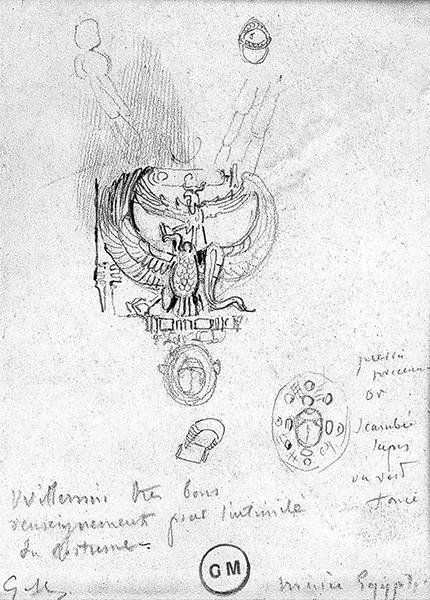 or
Scarabée
lapis
ou vert
foncé
Willemin très bons
renseignements pour l'intimité
du costume
GM
musée Egypt